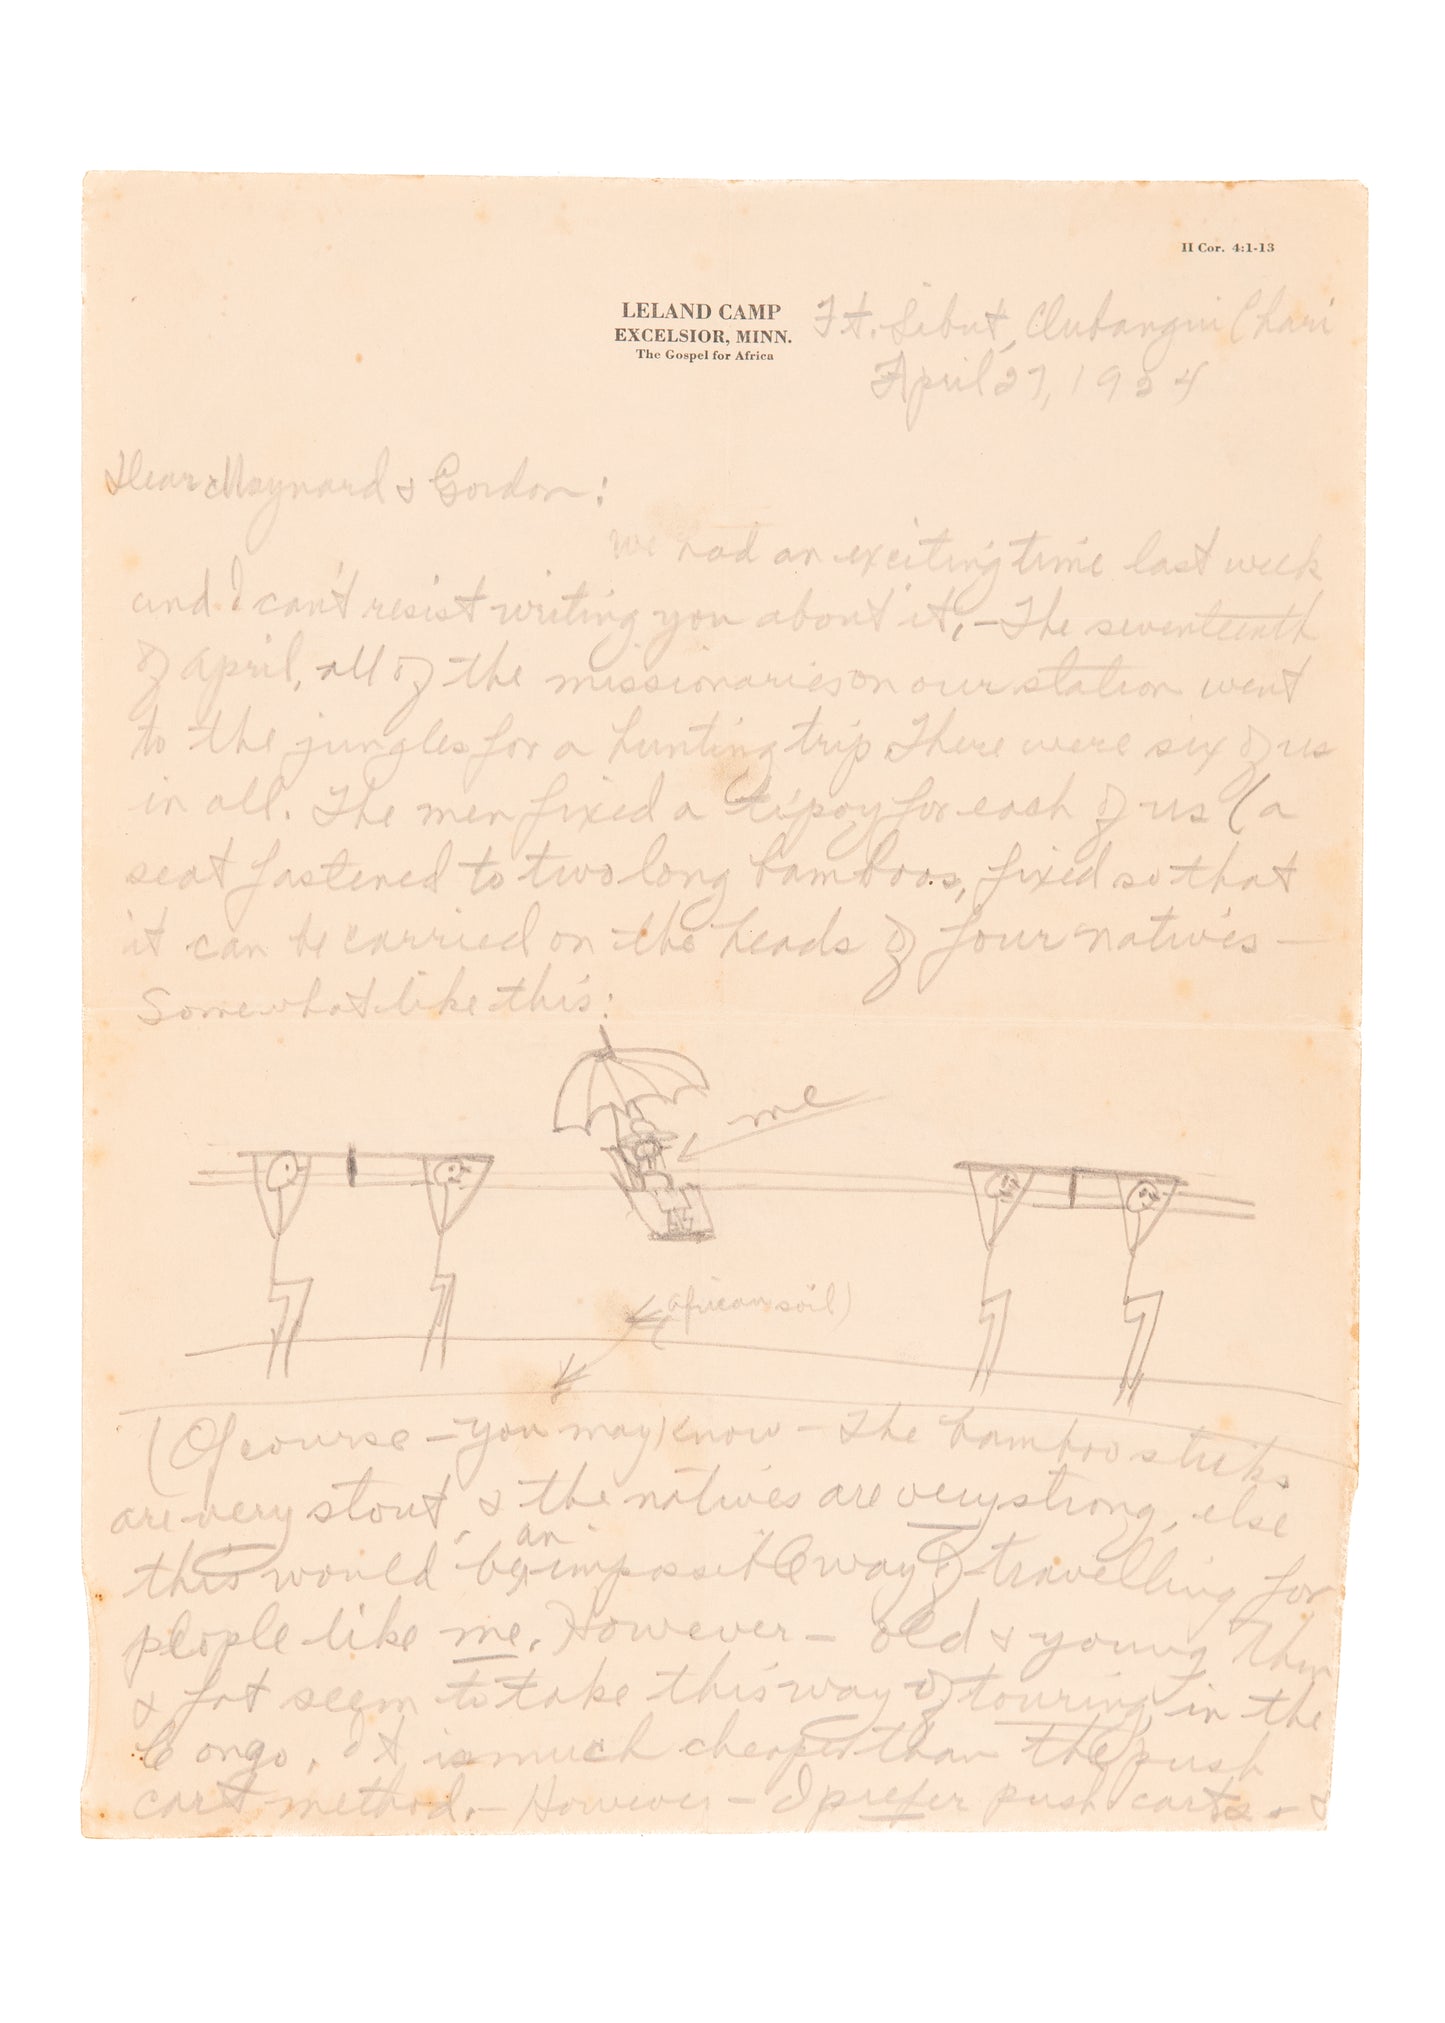 II Cor. 4:1-13
LELAND CAMP
EXCELSIOR, MINN.
The Gospel for Africa
Ft. Sibut, Oubangui Chari
April 27, 1924
Dear Maynard & Gordon:
We had an exciting time last week
and I can't resist writing you about it, - The seventeenth
of April, all of the missionaries on our station went
to the jungles for a hunting trip. There were six of us
in all. The men fixed a tipoy for each of us (a
seat fastened to two long bamboos, fixed so that
it can be carried on the heads of four natives —
Somewhat like this:
me
(african soil)
(Of course — you may know — the bamboo sticks
are very stout, & the natives are very strong, else
this would be an impossible way of travelling for
people like me. However — old & young thin
& fat seem to take this way of touring in the
Congo. It is much cheaper than the push
cart method. — However — I prefer push carts - &